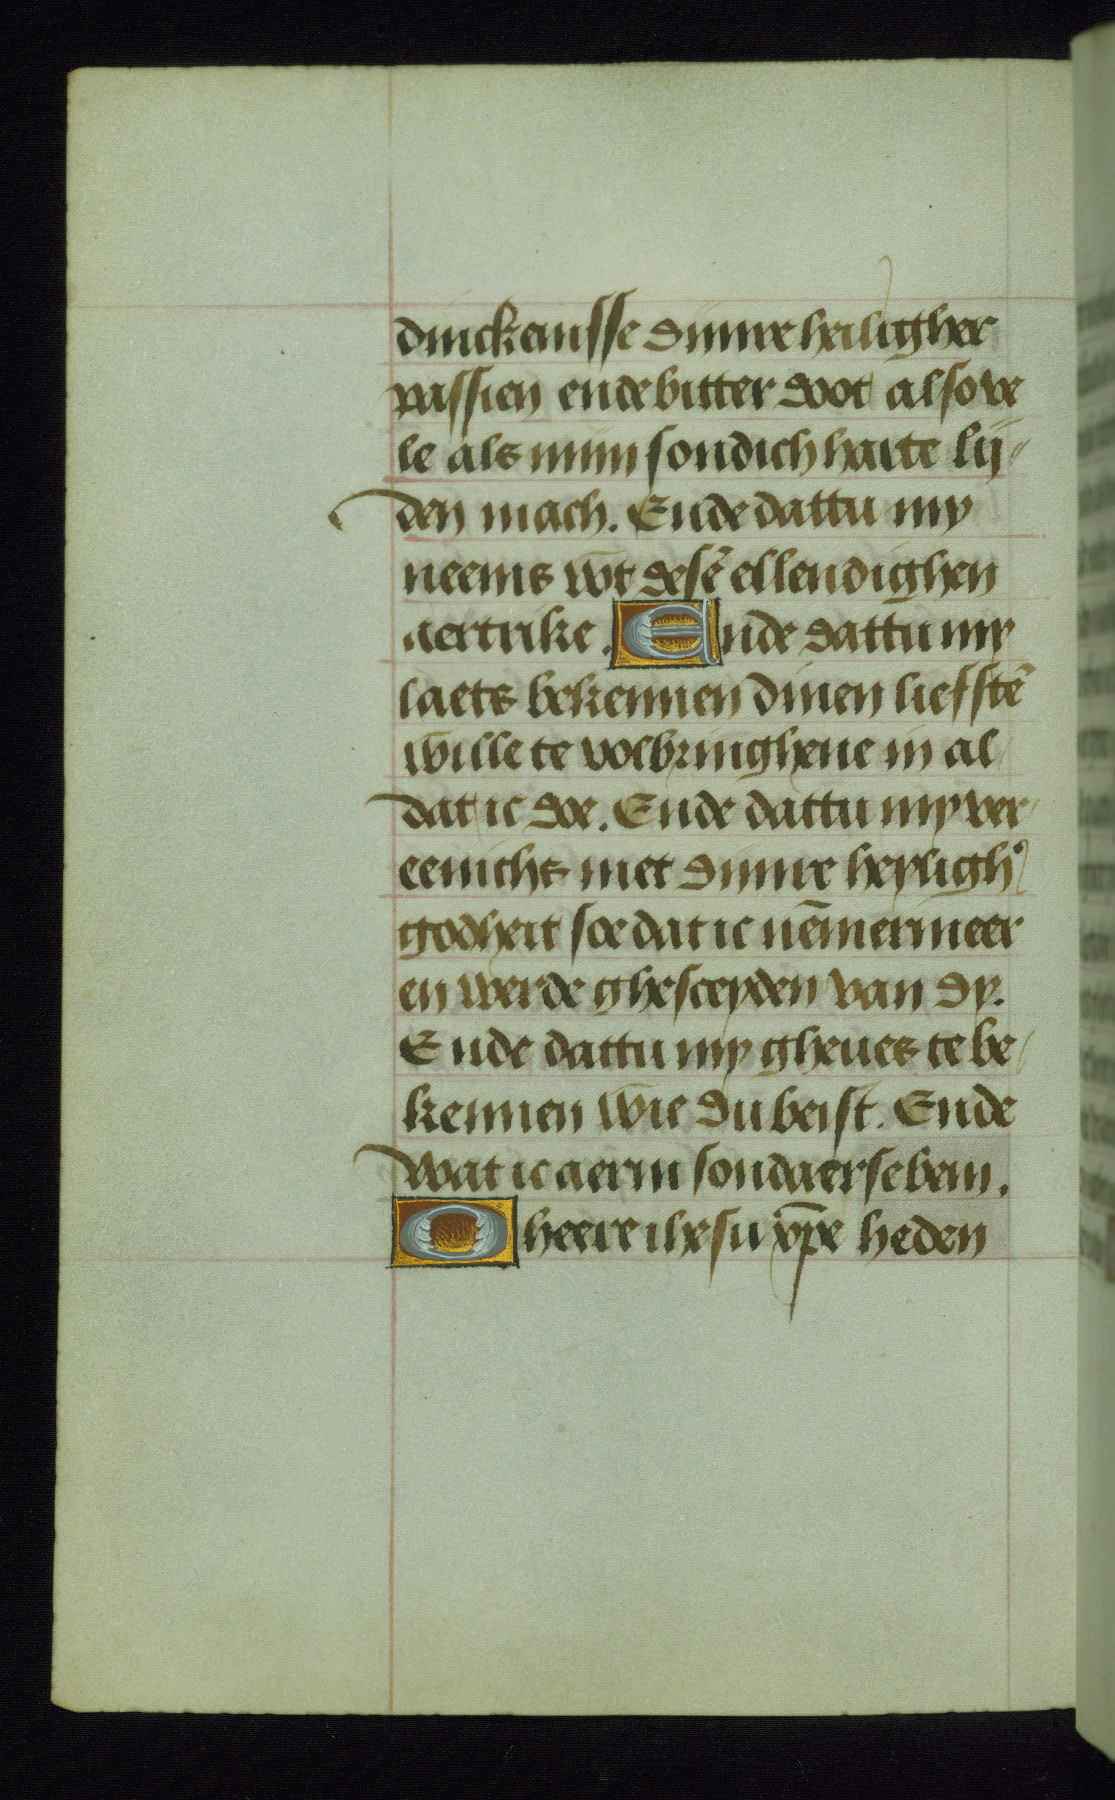 dinckenisse dijnre heiligher
passien ende bitter doot also ve
le als mijn sondich harte lij-
den mach. Ende dattu my
neems wt desē ellendighen
aertrike. Ende dattu my
laets bekennen dinen liefstē
wille te volbringhene in al
dat ic doe. Ende dattu my ver-
eenichs met dijnre heyligh᾽
godheit soe dat ic nēmermeer
en werde ghesceyden van dy.
Ende dattu my gheues te be-
kennen wie du beist. Ende
wat ic aerm sondaerse bem.
O heere ihesu xp̄e heden